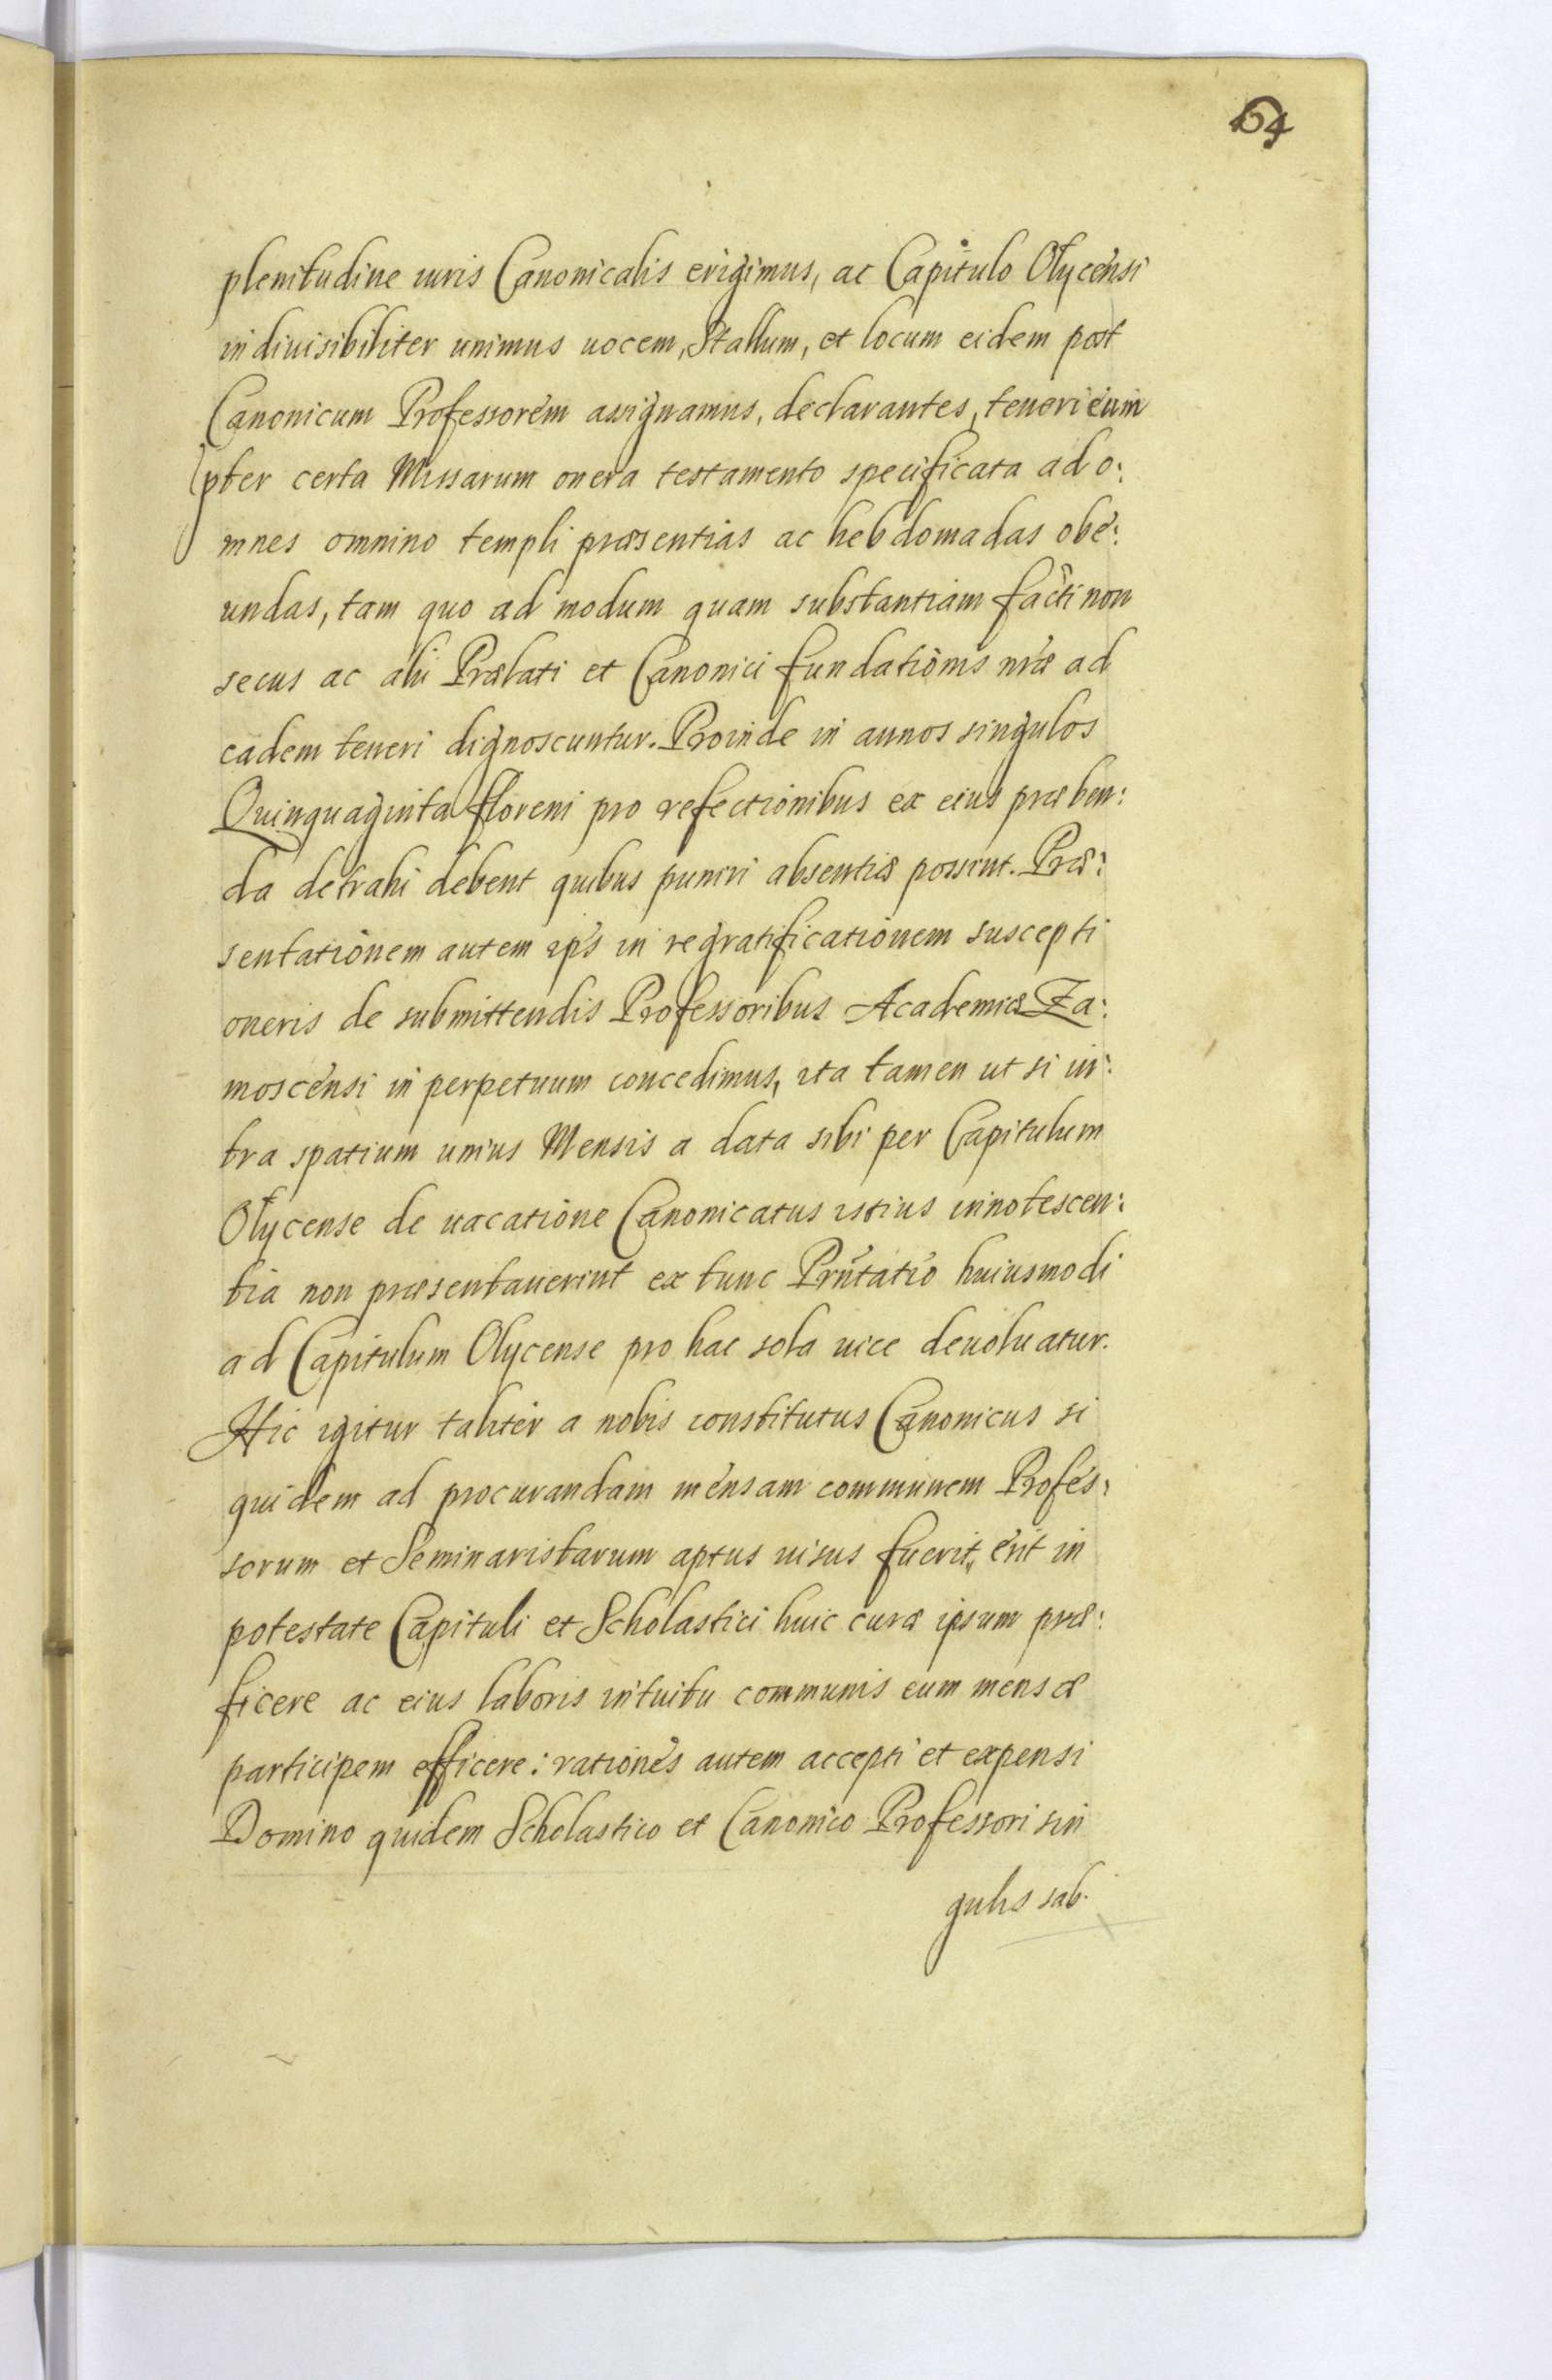 64
plenitudine iuris Canonicalis erigimus, ac Capitulo Olycensi
indiuisibiliter unimus uocem, Stallum, et locum eidem post
Canonicum Professorem assignamus, declarantes, teneri eum
pter certa Missarum onera testamento specificata ad o:
mnes omnino templi præsentias ac hebdomadas obe:
undas, tam quo ad modum quam substantiam facti non
secus ac alii Prælati et Canonici fundationis nræ ad
eadem teneri dignoscuntur. Proinde in annos singulos
Quinquaginta floreni pro refectionibus ex eius præben:
da detrahi debent quibus puniri absentiæ possint. Præ:
sentationem autem ips in regratificationem suscepti
oneris de submittendis Professoribus Academiæ Za:
moscensi in perpetuum concedimus, ita tamen ut si in:
tra spatium unius Mensis a data sibi per Capitulum
Olycense de uacatione Canonicatus istius innotescen:
tia non præsentauerint ex tunc Prñtatio huiusmodi
ad Capitulum Olycense pro hac sola uice deuoluatur.
Hic igitur taliter a nobis constitutus Canonicus si
quidem ad procurandam mensam communem Profes:
sorum et Seminaristarum aptus uisus fuerit, erit in
potestate Capituli et Scholastici huic curæ ipsum præ:
ficere ac eius laboris intuitu communis eum mensæ
participem efficere: rationes autem accepti et expensi
Domino quidem Scholastico et Canonico Professori sin
gulis sab.